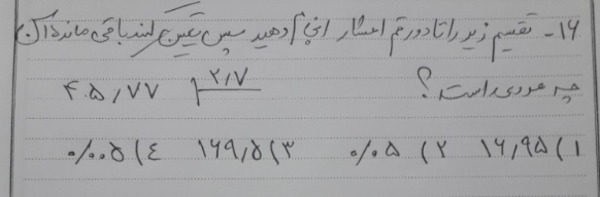 ۱۶- تقسیم زیر را تا دو رقم اعشار انجام دهید سپس تعیین کنید باقی مانده آن
چه عددی است؟ ۴۰۵/۷۷ ۲/۷
۱) ۱۶/۹۵ ۲) ۰/۰۵ ۳) ۱۶۹/۵ ۴) ۰/۰۰۵